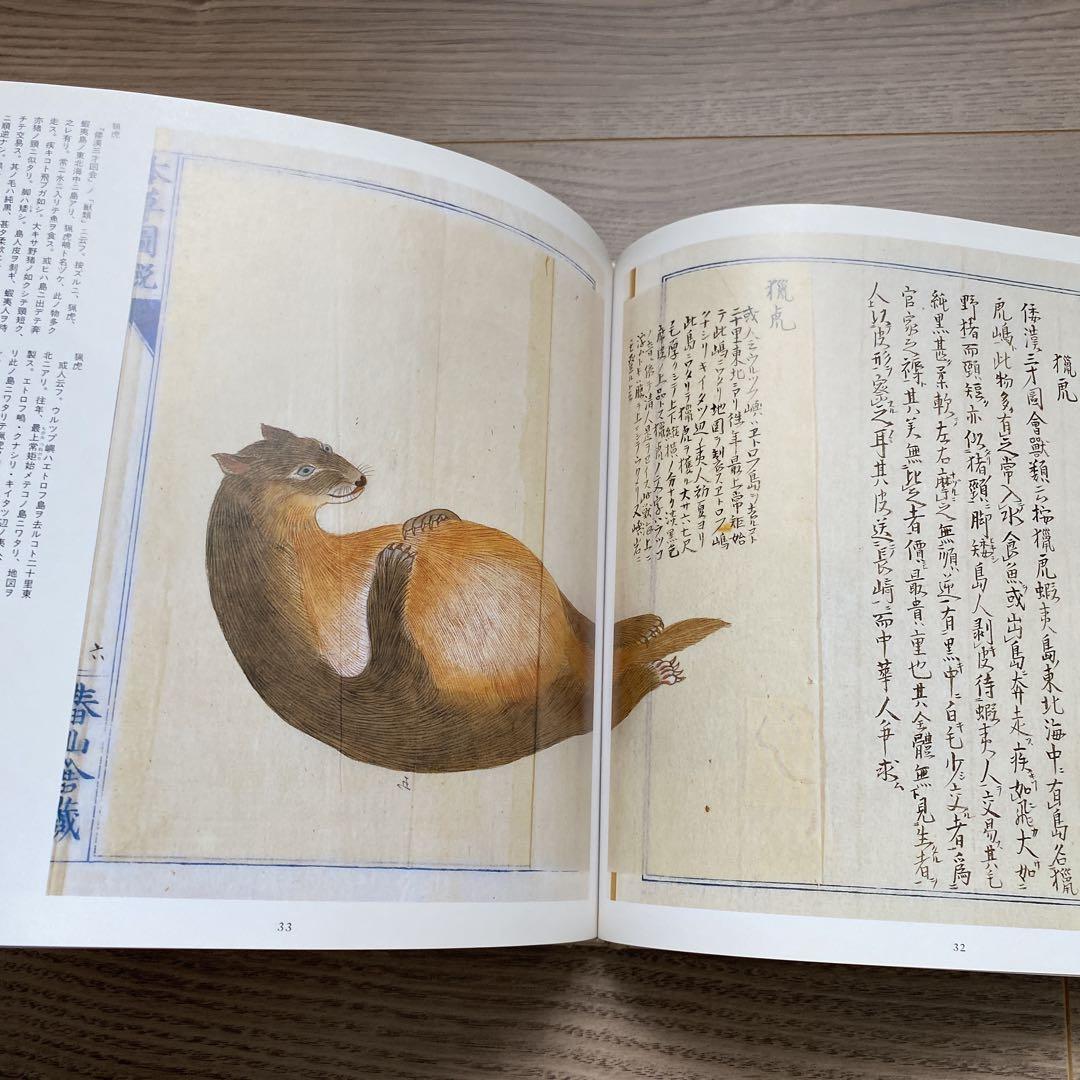 獵虎
倭漢三才圖會獸類云按獵虎蝦夷島東北海中有島名獵
虎嶋此物多有之常入水食魚或出島奔走疾如飛大如
野猪而頸短亦似猪頸脚矮島人剥皮待蝦夷人交易其毛
純黒甚柔軟左右摩之無順逆有黒中白毛少交者爲
官家之褥其美無比之者價最貴重也其全體無見生者
人以皮形察之耳其皮送長崎而中華人争求
獵虎
或人云ウルツプ嶼ハエトロフ島ヲ去ルコト
二十里東北ニアリ往年最上常矩始
テ此嶋ニワタリ地図ヲ製スヱトロフ嶋
クナシリキイタツ辺ノ夷人初夏ヨリ
此島ニワタリテ獵虎ヲ獲ル大サ六七尺
32
本草圖説
六
春山舎蔵
33
猟虎
『倭漢三才図会』ノ「獣類」ニ云フ。按ズルニ、猟虎、
蝦夷島ノ東北海中ニ島アリ、猟虎嶋ト名ヅケ、此ノ物多ク
之レ有リ。常ニ水ニ入リテ魚ヲ食ス。或ヒハ島ニ出デテ奔
走ス。疾キコト飛ブガ如シ。大キサ野猪ノ如クシテ頸短ク、
亦猪ノ頸ニ似タリ。脚ハ矮シ。島人皮ヲ剥ギ、蝦夷人ヲ待
チテ交易ス。其ノ毛ハ純黒、甚ダ柔軟
ニ順逆ナシ。
猟虎
或人云フ。ウルツプ嶼ハエトロフ島ヲ去ルコト二十里東
北ニアリ。往年、最上常矩始メテコノ島ニワタリ、地図ヲ
製ス。エトロフ嶋・クナシリ・キイタツ辺ノ夷人、
リ此ノ島ニワタリテ猟虎